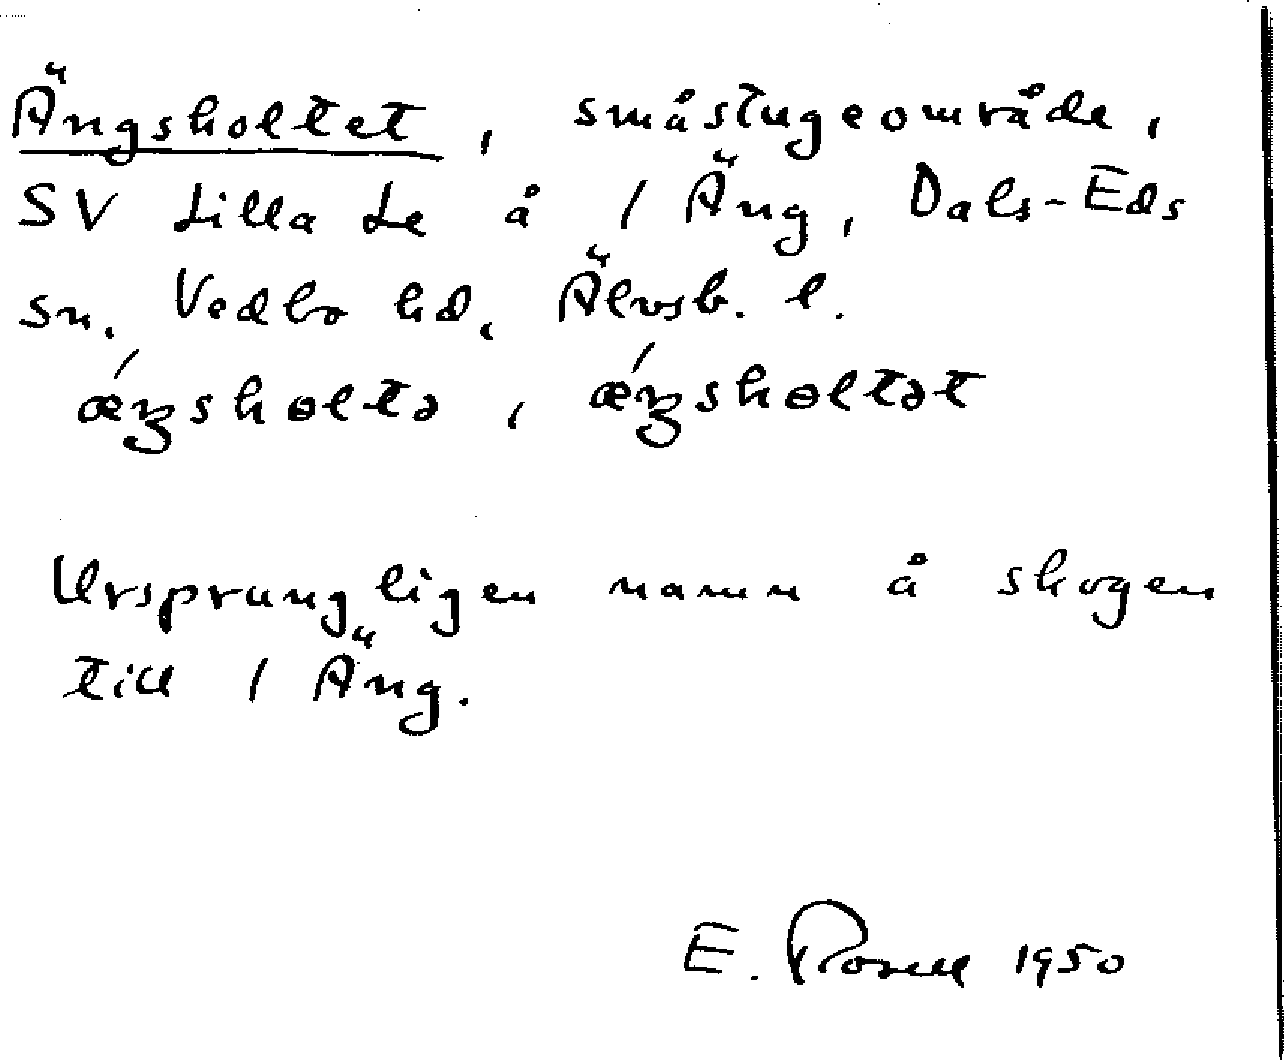 Ängsholtet, småstugeområde,
SV Lilla Le å 1 Äng, Dals-Eds
sn. Vedbo hd, Älvsb. l.
ǽŋsholtə, ǽŋshɵltət
Ursprungligen namn å skogen
till 1 Äng.
E. Rosell 1950